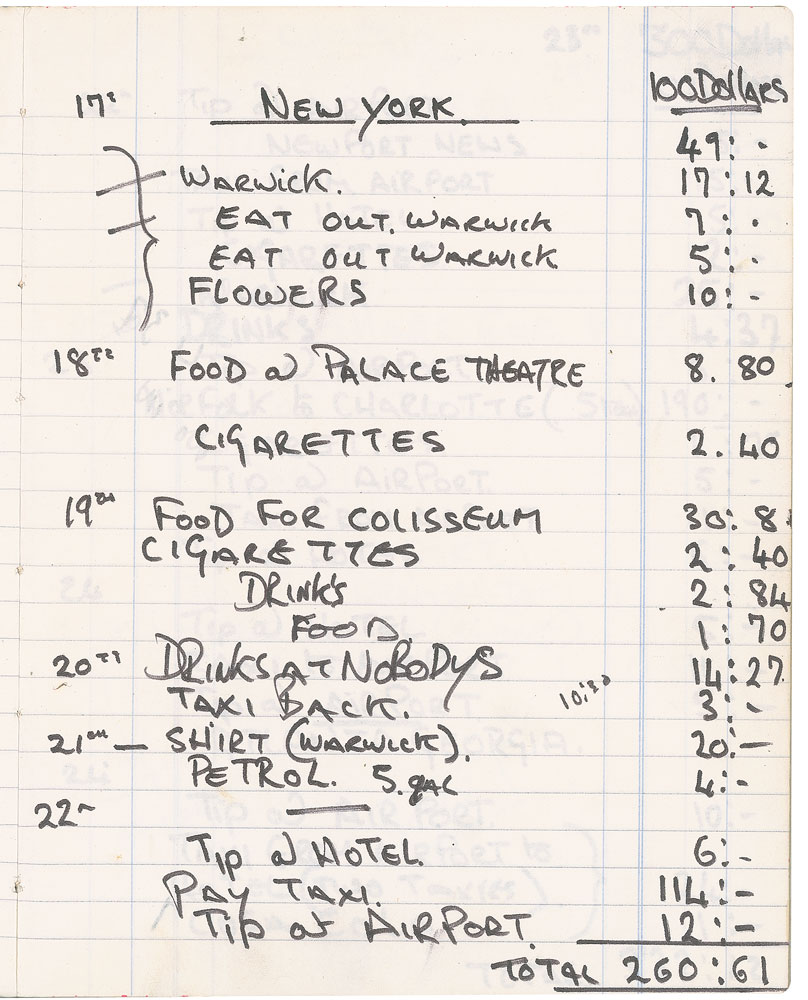 100 Dollars
17th NEW YORK
49: -
WARWICK. 17:12
EAT OUT. WARWICK 7: -
EAT OUT WARWICK 5: -
FLOWERS 10: -
18TH FOOD at PALACE THEATRE 8. 80
CIGARETTES 2. 40
19TH FOOD FOR COLISSEUM 30: 8
CIGARETTES 2: 40
DRINKS 2: 84
FOOD. 1: 70
20TH DRINKS AT NOBODYS 14:27
TAXI BACK. 10:30 3: -
21ST — SHIRT (WARWICK). 20: —
PETROL. 5. gAL 4: -
22
Tip at HOTEL. 6: -
PAY TAXI. 114: -
Tip at AIRPORT. 12: -
TOTAL 260:61